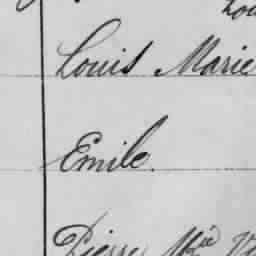 Louis Marie
Emile.
Pierre Mie